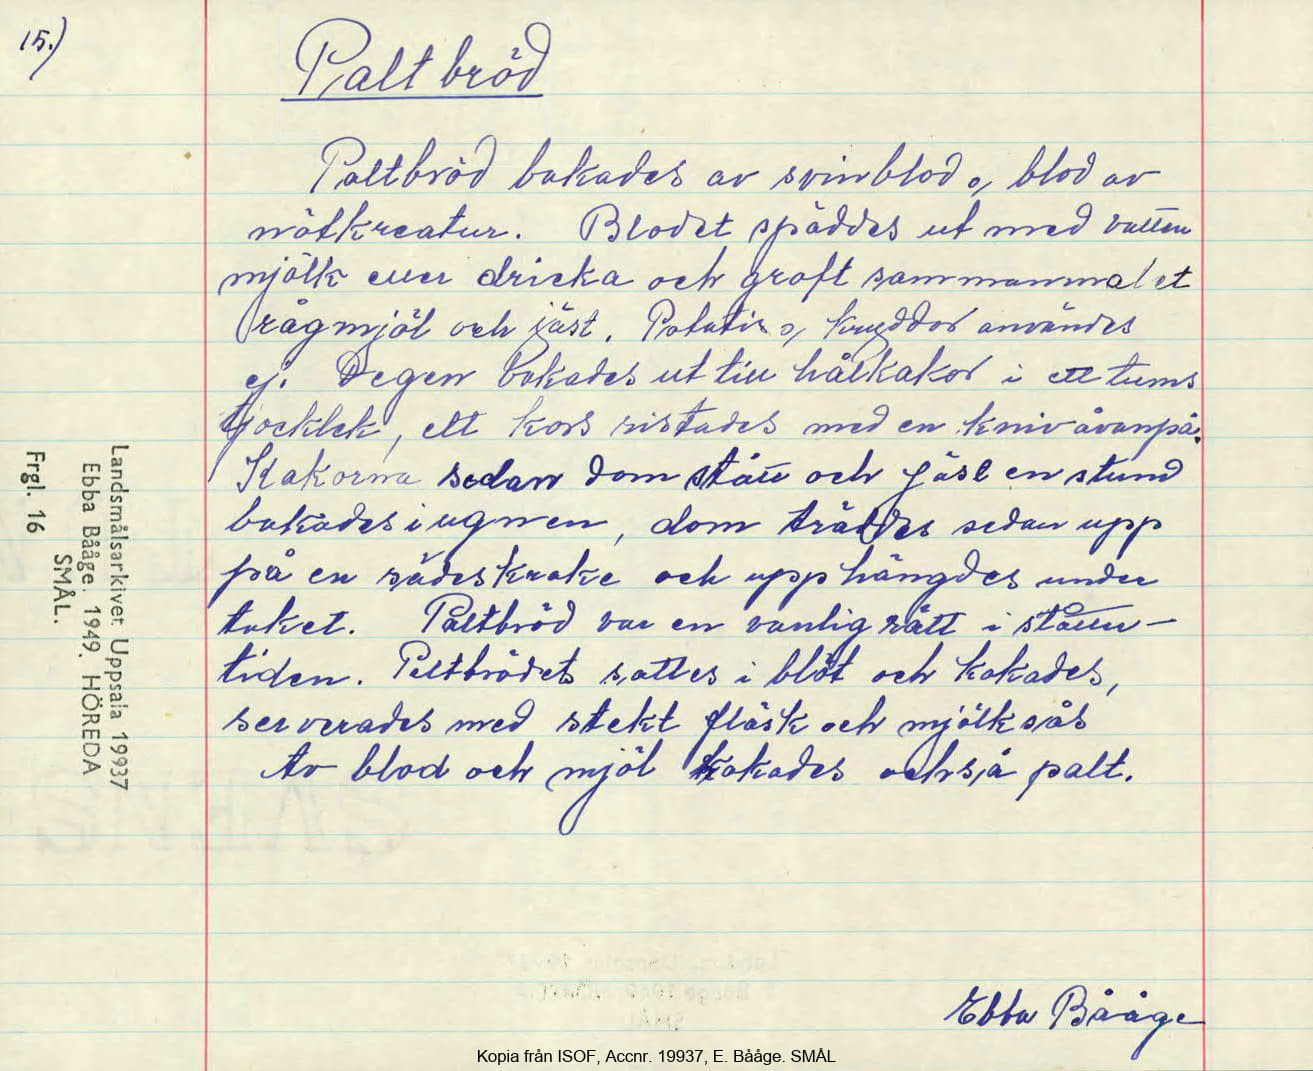 15.)
Paltbröd
Paltbröd bakades av svinblod o, blod av
nötkreatur. Blodet späddes ut med vatten
mjölk eller dricka och groft sammanmalet
rågmjöl och jäst. Potatis o, kryddor användes
ej. Degen bakades ut till hålkakor i ett tums
tjocklek, ett kors ristades med en kniv åvanpå.
Kakorna sedan dom stått och jäst en stund
bakades i ugnen, dom träddes sedan upp
på en sädeskrake och upphängdes under
taket. Paltbröd var en vanlig rätt i
tiden. Paltbrödets sattes i blöt och kokades,
serverades med stekt fläsk och mjölksås
Av blod och mjöl kokades ochså palt.
Ebba Bååge
Landsmålsarkivet Uppsala 19937
Ebba Bååge. 1949. HÖREDA
SMÅL.
Frgl. 16
Kopia från ISOF, Accnr. 19937, E. Bååge. SMÅL